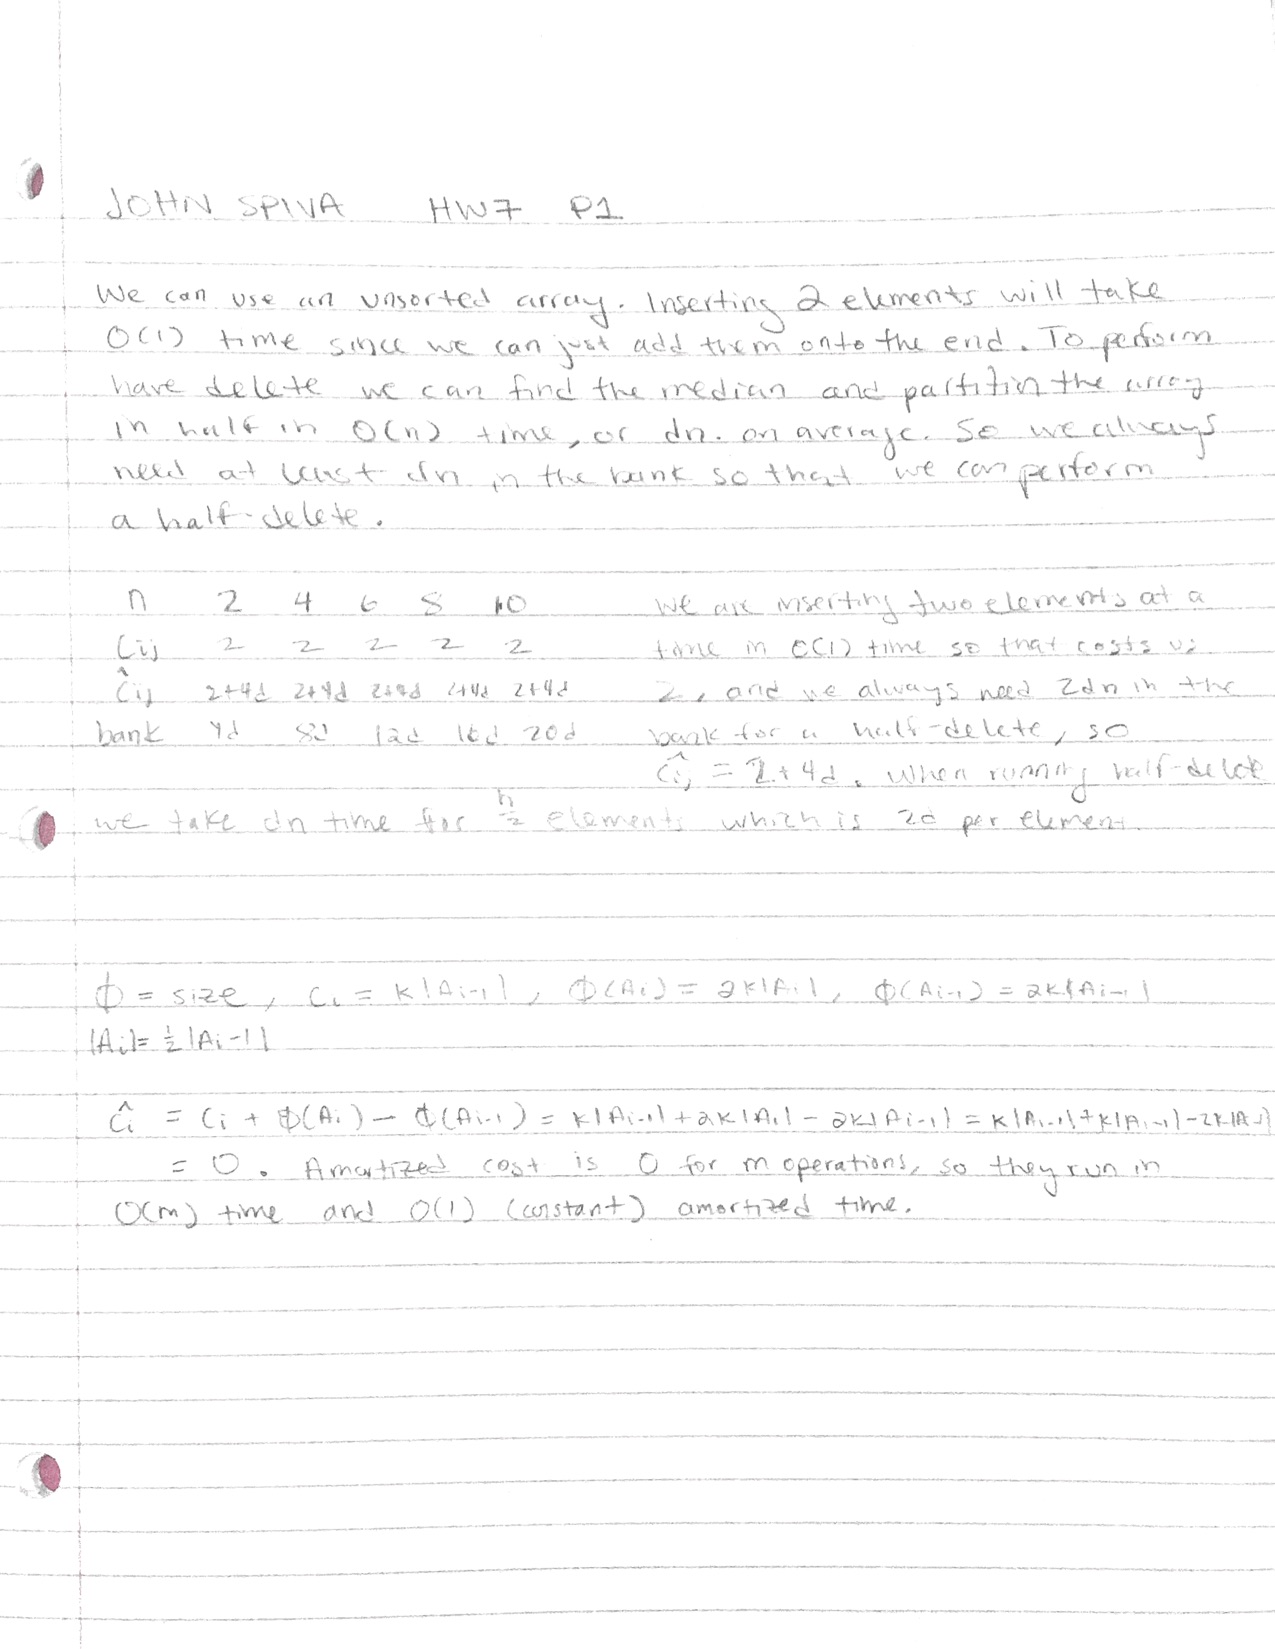 JOHN SPIVA HW7 P1
We can use an unsorted array. Inserting 2 elements will take
O(1) time since we can just add them onto the end. To perform
have delete we can find the median and partitin the array
in half in O(n) time, or dn. on average. So we always
need at least dn in the bank so that we can perform
a half-delete.
n 2 4 6 8 10
Cij 2 2 2 2 2
Ĉij 2+4d 2+4d 2+4d 2+4d 2+4d
bank 4d 8d 12d 16d 20d
we are inserting two elements at a
time in O(1) time so that costs us
2, and we always need 2dn in the
bank for a half-delete, so
Ĉij = 2+4d. When running half-delete
we take dn time for n/2 elements which is 2d per element
ϕ = size, Ci = K|Ai-1|, ϕ(Ai) = 2K|Ai|, ϕ(Ai-1) = 2K|Ai-1|
|Ai|= ½|Ai-1|
Ĉi = Ci + ϕ(Ai) - ϕ(Ai-1) = K|Ai-1|+2K|Ai| - 2K|Ai-1| = K|Ai-1|+K|Ai-1|-2K|Ai-1|
= 0. Amortized cost is 0 for m operations, so they run in
O(m) time and O(1) (constant) amortized time.